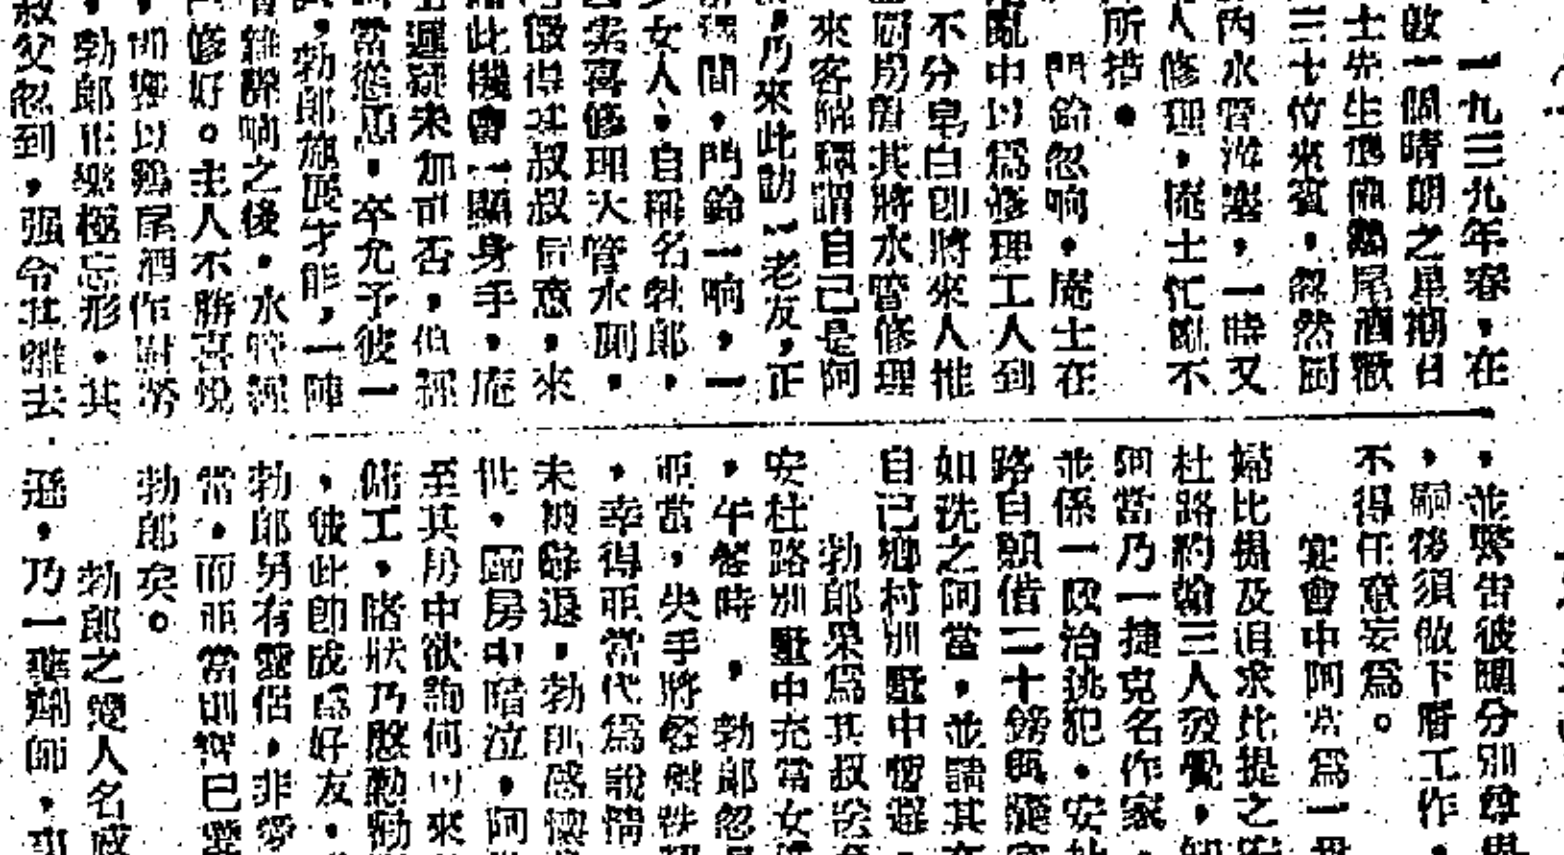 一九三九年春，在
一個晴朗之星期日
士先生遇佩鷄尾酒歡
三十位來賓，忽然厨
內水管淤塞，一時又
人修理，庵士忙亂不
所措。
門鈴忽响，庵士在
亂中以爲修理工人到
不分皂白卽將來人推
厨房着其將水管修理
來客解釋謂自己是阿
，乃來此訪一老友，正
間，門鈴一响，一
少女人，自稱名勃郎，
喜修理大管水厠，
得其叔叔同意，來
此機會一顯身手，庵
遲疑未加可否，但經
當慫恿，卒允予彼一
，勃郎施展才能，一陣
之後，水管經
修好。主人不勝喜悅
卽與以鷄尾酒作酬勞
，勃郎正樂極忘形，其
叔父忽到，强令其離去
，並警告彼輩分別尊卑
，嗣後須做下層工作，
不得任意妄爲。
宴會中阿當爲一
婦比提及追求比提之安
杜路約翰三人發覺，知
阿當乃一捷克名作家
並係一政治逃犯，安杜
路自願借二十鎊與
如洗之阿當，並請其在
自己鄉村別墅中暫避，
勃郎果爲其叔送
安杜路別墅中充當女
，午餐時，勃郎忽見
亞當，失手將餐
，幸得亞當代爲說情
未被辭退，勃郎感懷
世，回房中暗泣，阿
至其房中欲詢何以來
傭工，睹狀乃慇勤勸
，彼此卽成爲好友，
勃郎另有愛侶，非愛
當，而亞當則智已愛
勃郎矣。
勃郎之愛人名威
遜，乃一藥劑師，